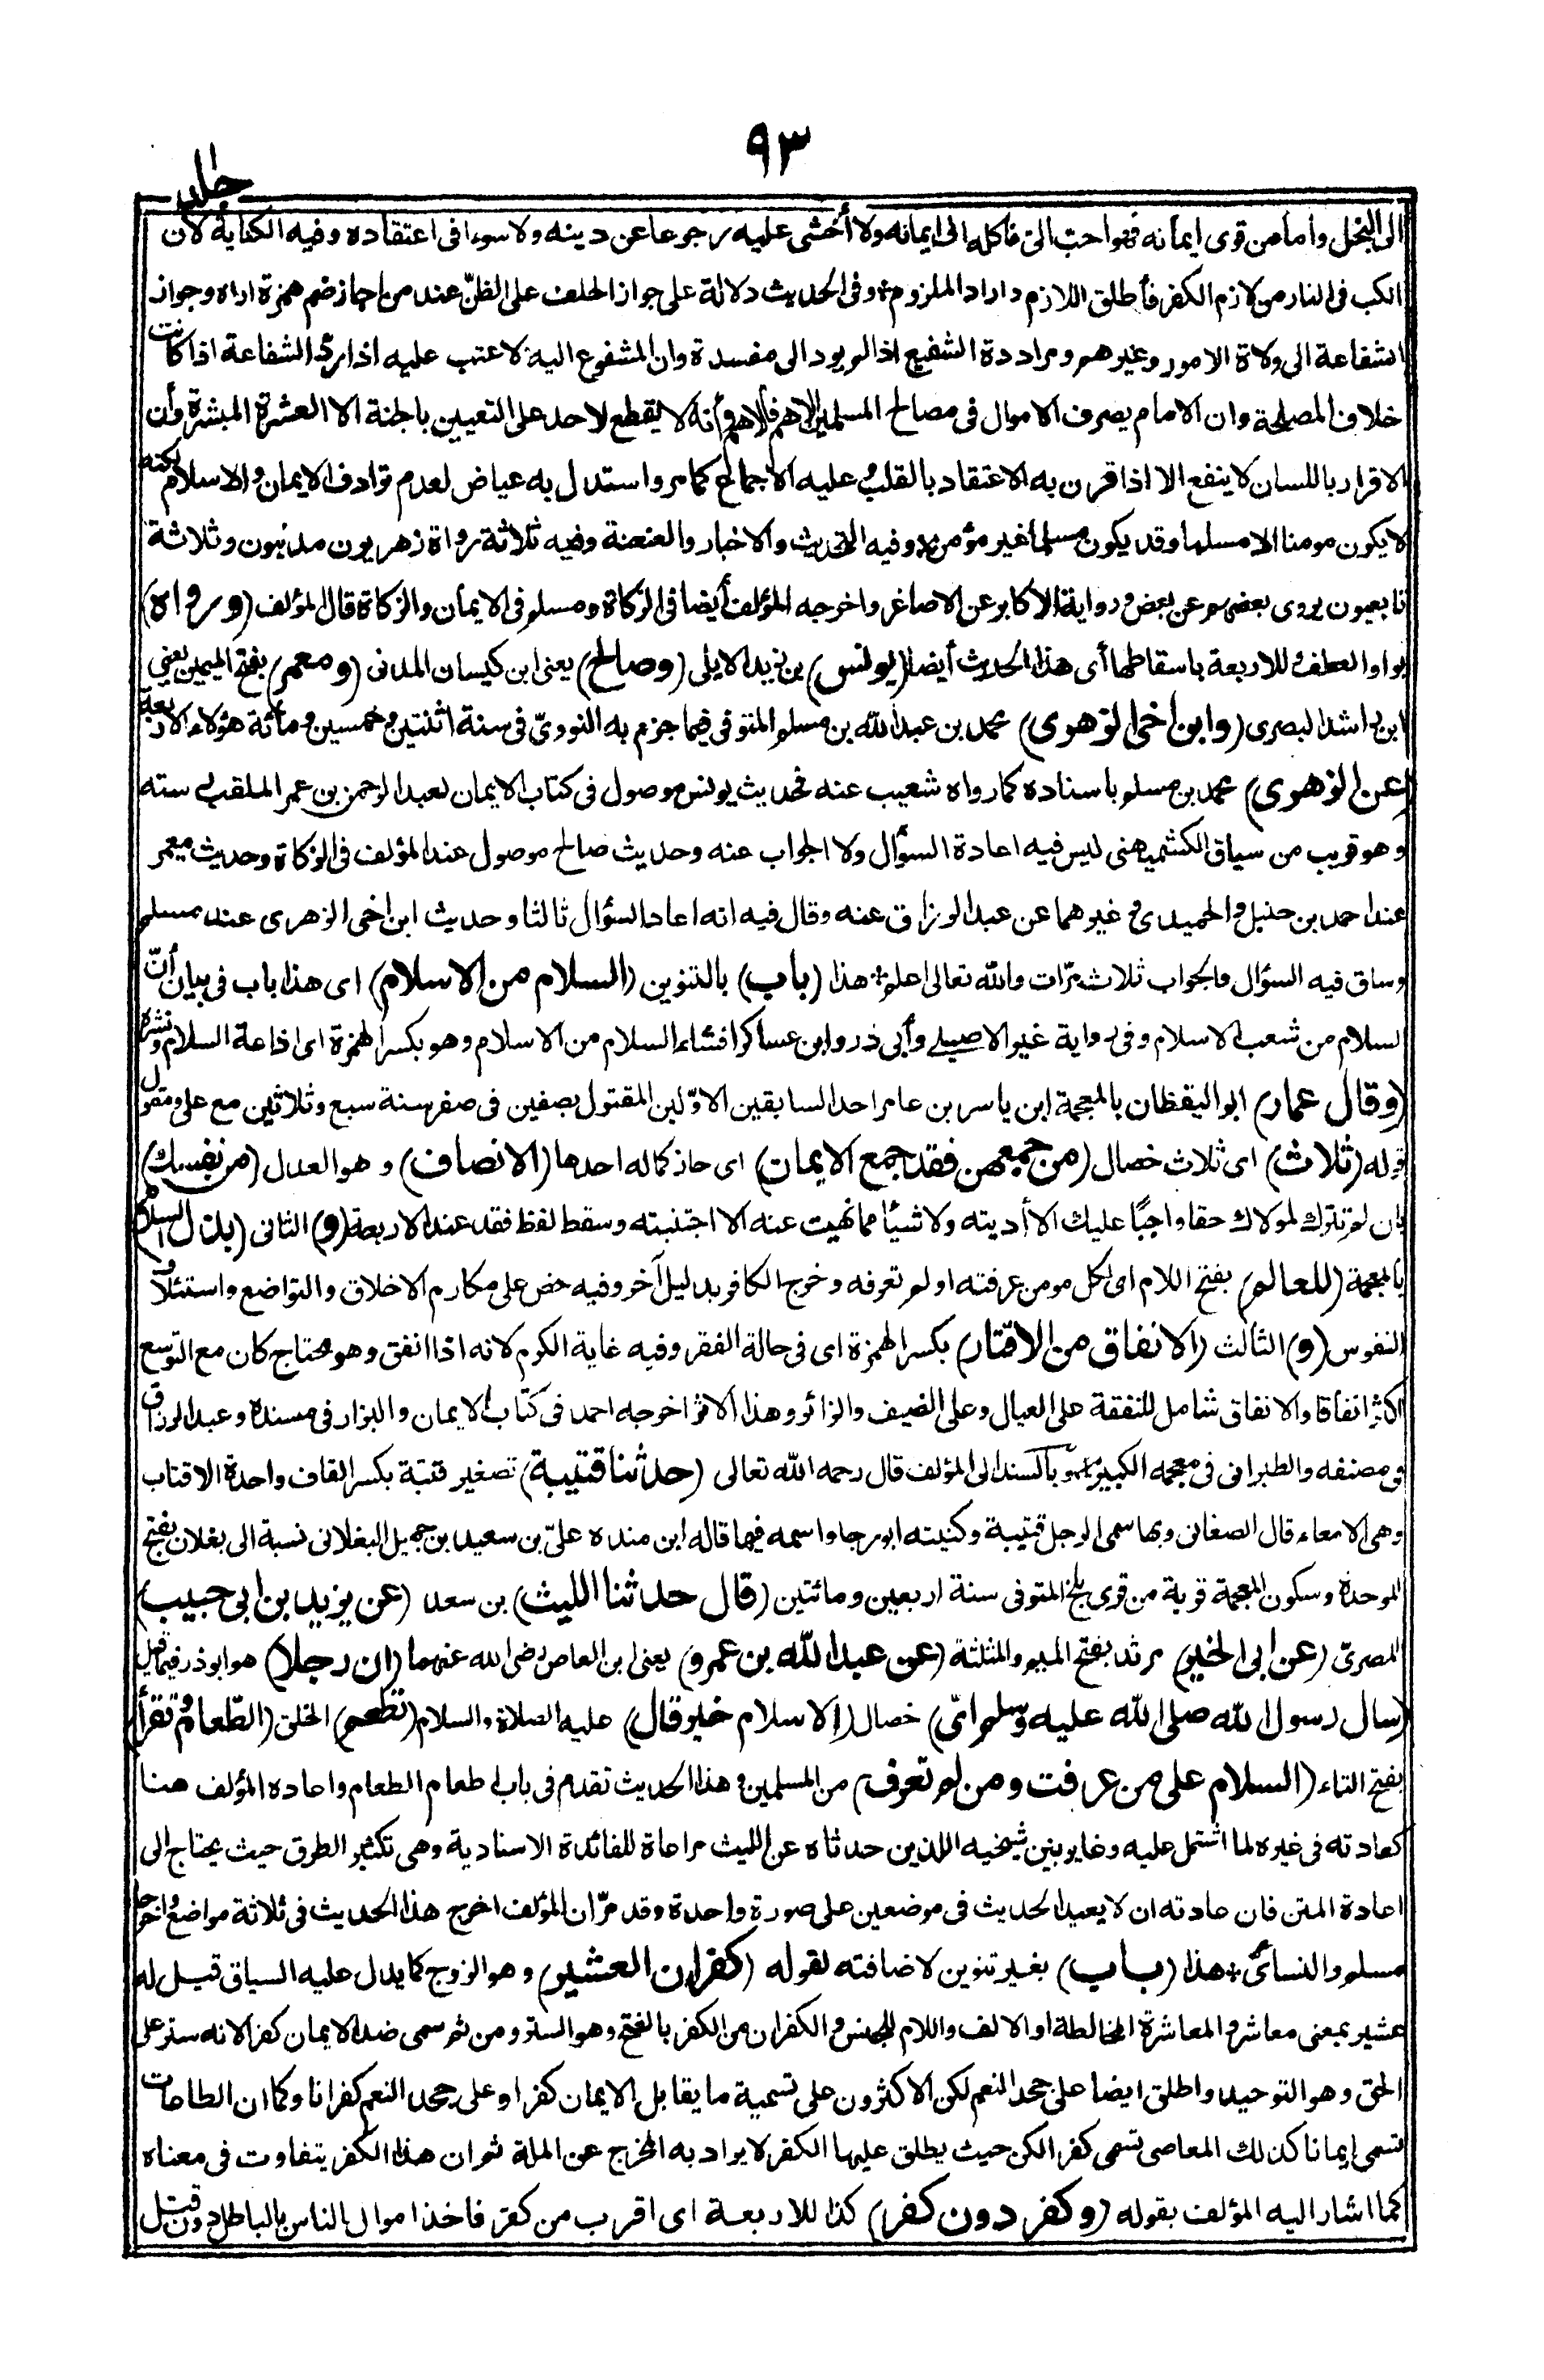 ٩٣
جلد
الى البخل وأما من قوى ايمانه فهو احب الىّ فأكله الى ايمانه ولا أخشى عليه رجوعا عن دينه ولا سوءا فى اعتقاده وفيه الكناية لان
الكب فى النار من لازم الكفر فأطلق اللازم واراد الملزوم* وفى الحديث دلالة على جواز الحلف على الظنّ عند من اجاز ضم همزة اراه وجواز
الشفاعة الى ولاة الامور وغيرهم ومراددة الشفيع اذا لم يود الى مفسدة وان المشفوع اليه لا عتب عليه اذا ردّ الشفاعة اذا كانت
خلاف المصلحة وان الامام يصرف الاموال فى مصالح المسلمين الاهم فالاهم وأنه لا يقطع لاحد على التعيين بالجنة الا العشرة المبشرة وأن
الاقرار باللسان لا ينفع الا اذا قرن به الاعتقاد بالقلب وعليه الاجماع كما مر واستدل به عياض لعدم ترادف الايمان والاسلام لكنه
لا يكون مومنا الا مسلما وقد يكون مسلما غير مؤمن* وفيه التحديث والاخبار والعنعنة وفيه ثلاثة رواة زهريون مدنيون وثلاثة
تابعيون يروى بعضهم عن بعض ورواية الاكابر عن الاصاغر واخرجه المؤلف أيضا فى الزكاة ومسلم فى الايمان والزكاة قال المؤلف (ورواه)
بواو العطف وللاربعة باسقاطها أى هذا الحديث أيضا (يونس) بن يزيد الايلى (وصالح) يعنى ابن كيسان المدنى (ومعمر) بفتح الميمين يعنى
ابن راشد البصرى (وابن اخى الزهرى) محمد بن عبد الله بن مسلم المتوفى فيما جزم به النووىّ فى سنة اثنتين وخمسين ومائة هؤلاء الاربعة
(عن الزهرى) محمد بن مسلم باسناده كما رواه شعيب عنه فحديث يونس موصول فى كتاب الايمان لعبد الرحمن بن عمر الملقب رسته
وهو قريب من سياق الكشميهنى ليس فيه اعادة السؤال ولا الجواب عنه وحديث صالح موصول عند المؤلف فى الزكاة وحديث معمر
عند احمد بن حنبل والحميدى وغيرهما عن عبد الرزاق عنه وقال فيه انه اعاد السؤال ثالثا وحديث ابن اخى الزهرى عند مسلم
وساق فيه السؤال والجواب ثلاث مرّات والله تعالى اعلم* هذا (باب) بالتنوين (السلام من الاسلام) اى هذا باب فى بيان أنّ
السلام من شعب الاسلام وفى رواية غير الاصيلى وأبى ذر وابن عساكر افشاء السلام من الاسلام وهو بكسر الهمزة اى اذاعة السلام ونشره
(وقال عمار) ابو اليقظان بالمعجمة ابن ياسر بن عامر احد السابقين الاوّلين المقتول بصفين فى صفر سنة سبع وثلاثين مع على ومقول
قوله (ثلاث) اى ثلاث خصال (من جمعهن فقد جمع الايمان) اى حاز كماله احدها (الانصاف) وهو العدل (من نفسك)
بان لم تترك لمولاك حقا واجبًا عليك الا أديته ولا شيئًا مما نهيت عنه الا اجتنبته وسقط لفظ فقد عند الاربعة (و) الثانى (بذل السلام)
بالمعجمة (للعالم) بفتح اللام اى لكل مومن عرفته او لم تعرفه وخرج الكافر بدليل آخر وفيه حض على مكارم الاخلاق والتواضع واستئلاف
النفوس (و) الثالث (الانفاق من الاقتار) بكسر الهمزة اى فى حالة الفقر وفيه غاية الكرم لانه اذا انفق وهو محتاج كان مع التوسع
اكثر انفاقا والانفاق شامل للنفقة على العيال وعلى الضيف والزائر وهذا الاثر اخرجه احمد فى كتاب الايمان والبزار فى مسنده وعبد الرزاق
فى مصنفه والطبرانى فى معجمه الكبير* وبالسند الى المؤلف قال رحمه الله تعالى (حدثنا قتيبة) تصغير قتبة بكسر القاف واحدة الاقتاب
وهى الامعاء قال الصغانى وبها سمى الرجل قتيبة وكنيته ابو رجا واسمه فيما قاله ابن منده علىّ بن سعيد بن جميل البغلانى نسبة الى بغلان بفتح
الموحدة وسكون المعجمة قرية من قرى بلخ المتوفى سنة اربعين ومائتين (قال حدثنا الليث) بن سعد (عن يزيد بن ابى حبيب)
المصرىّ (عن ابى الخير) مرثد بفتح الميم والمثلثة (عن عبد الله بن عمرو) يعنى ابن العاص رضى الله عنهما (ان رجلا) هو ابو ذر فيما قيل
(سال رسول الله صلى الله عليه وسلم اىّ) خصال (الاسلام خير قال) عليه الصلاة والسلام (تطعم) الخلق (الطّعام وتقرأ)
بفتح التاء (السلام على من عرفت ومن لم تعرف) من المسلمين وهذا الحديث تقدم فى باب اطعام الطعام واعاده المؤلف هنا
كعادته فى غيره لما اشتمل عليه وغاير بين شيخيه اللذين حدثاه عن الليث مراعاة للفائدة الاسنادية وهى تكثير الطرق حيث يحتاج الى
اعادة المتن فان عادته ان لا يعيد الحديث فى موضعين على صورة واحدة وقد مرّ ان المؤلف اخرج هذا الحديث فى ثلاثة مواضع واخرجه
مسلم والنسائى* هذا (باب) بغير تنوين لاضافته لقوله (كفران العشير) وهو الزوج كما يدل عليه السياق قيل له
عشير بمعنى معاشر والمعاشرة المخالطة او الالف واللام للجنس والكفران من الكفر بالفتح وهو الستر ومن ثم سمى ضد الايمان كفرا لانه ستر على
الحق وهو التوحيد واطلق ايضا على جحد النعم لكن الاكثرون على تسمية ما يقابل الايمان كفرا وعلى جحد النعم كفرانا وكما ان الطاعات
تسمى ايمانا كذلك المعاصى تسمى كفرا لكن حيث يطلق عليها الكفر لا يراد به المخرج عن الملة ثم ان هذا الكفر يتفاوت فى معناه
كما اشار اليه المؤلف بقوله (وكفر دون كفر) كذا للاربعة اى اقرب من كفر فاخذ اموال الناس بالباطل دون قتل